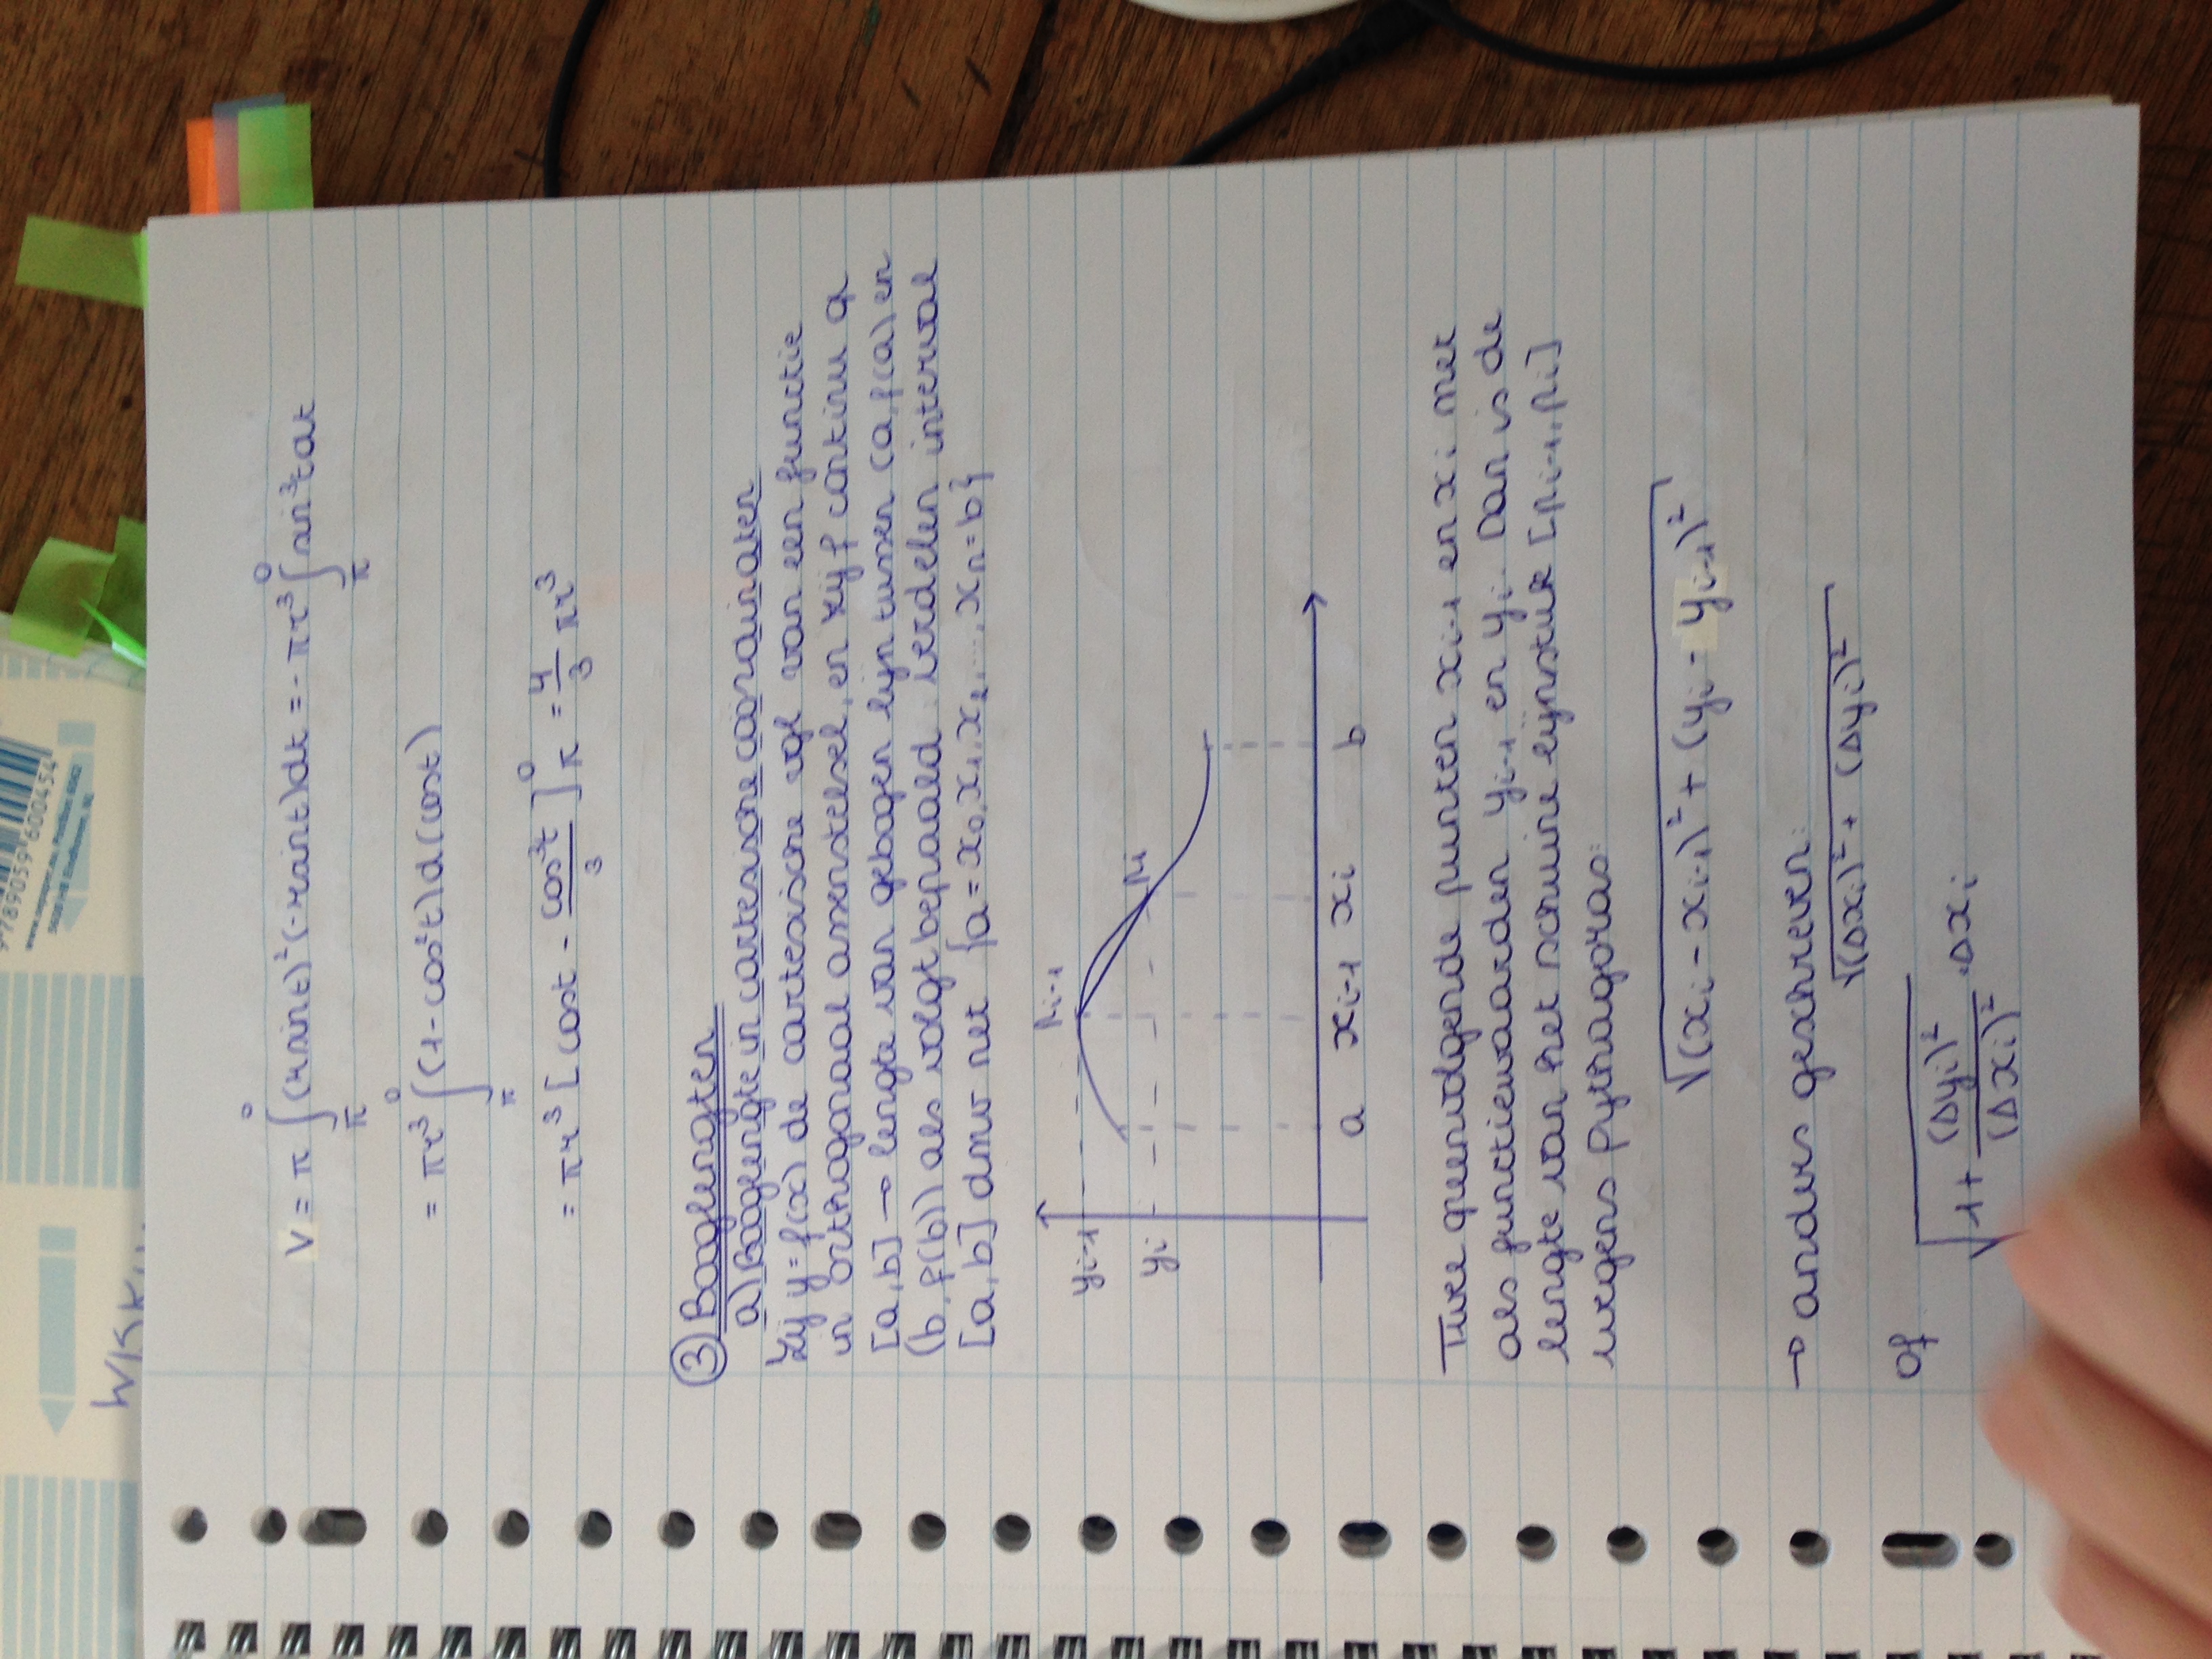 9789059600454
www.sepaper.eu, Postbus 6062
5600 HB Eindhoven, NL
WISKU
V = π ∫_π^0 (r sin t)² (-r sin t) dt = - π r³ ∫_π^0 sin³t dt
= π r³ ∫_π^0 (1 - cos²t) d(cos t)
= π r³ [cos t - cos³t / 3]_π^0 = 4/3 π r³
③ Booglengten
a) Booglengte in cartesische coördinaten
Zij y = f(x) de cartesische vgl van een functie
in orthogonaal assenstelsel, en zij f continu op
[a,b] → lengte van gebogen lijn tussen (a, f(a) en
(b, f(b)) als volgt bepaald: verdelen interval
[a,b] dmv net {a = x₀, x₁, x₂, ..., xₙ = b}
pᵢ₋₁
yᵢ₋₁
pᵢ
yᵢ
a xᵢ₋₁ xᵢ b
Twee opeenvolgende punten xᵢ₋₁ en xᵢ met
als functiewaarden yᵢ₋₁ en yᵢ. Dan is de
lengte van het schuine lijnstuk [pᵢ₋₁, pᵢ]
wegens pythagoras:
√((xᵢ - xᵢ₋₁)² + (yᵢ - yᵢ₋₁)²)
→ anders geschreven:
√((Δxᵢ)² + (Δyᵢ)²)
of √(1 + (Δyᵢ)² / (Δxᵢ)²) · Δxᵢ